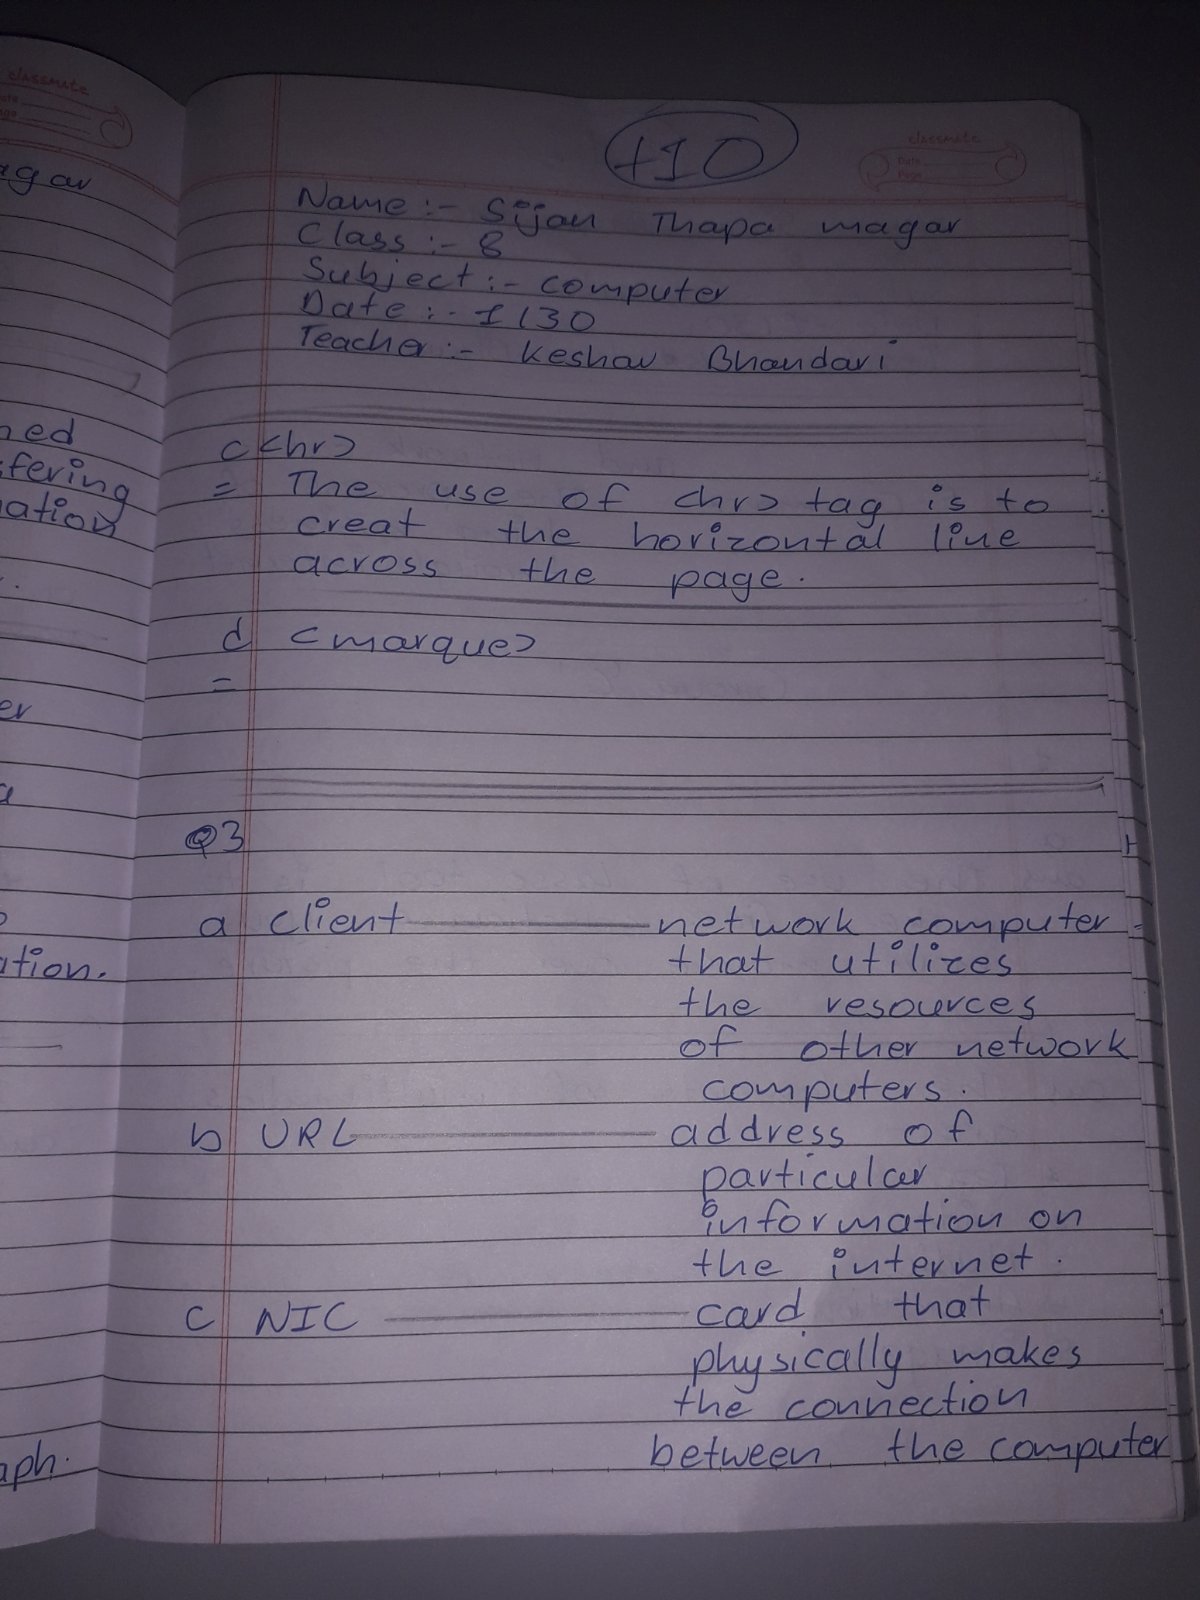 classmate
agar
ned
sfering
mation
er
ation.
aph.
+10
classmate
Date
Page
Name :- Sijan Thapa magar
Class :- 8
Subject :- computer
Date :- 1/30
Teacher :- Keshav Bhandari
c <hr>
= The use of <hr> tag is to
creat the horizontal line
across the page.
d <marque>
=
Q3
a client — network computer
that utilizes
the resources
of other network
computers.
b URL — address of
particular
information on
the internet.
c NIC — card that
physically makes
the connection
between the computer